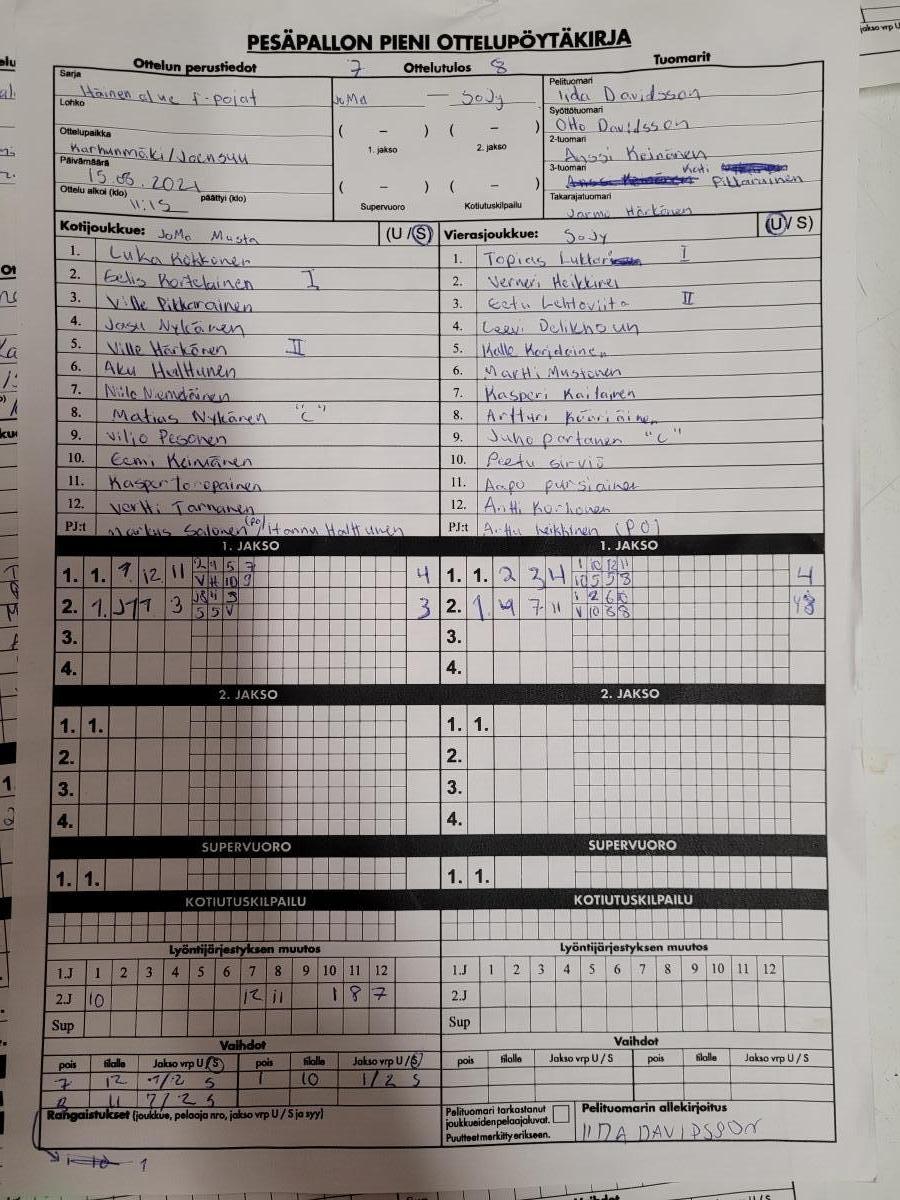 PESÄPALLON PIENI OTTELUPÖYTÄKIRJA
Ottelun perustiedot 7 Ottelutulos 8 Tuomarit
Sarja
Lohko
JoMa — SoJy
Pelituomari
Iida Davidsson
Syöttötuomari
Otto Davidsson
Ottelupaikka
Karhunmäki/Joensuu
( – ) ( – )
1. jakso 2. jakso
2-tuomari
Anssi Keinänen
Päivämäärä
15.08.2021
3-tuomari
Kati
Pikkarainen
Ottelu alkoi (klo) 11:15 päättyi (klo)
( – ) ( – )
Supervuoro Kotiutuskilpailu
Takarajatuomari
Jarmo Härkönen
Kotijoukkue: JoMa Musta (U / S)
1. Luka Kokkonen
2. Eelis Kortelainen I
3. Ville Pikkarainen
4. Jasu Nykänen
5. Ville Härkönen II
6. Aku Halttunen
7.
8. Matias Nykänen "C"
9. Viljo Pesonen
10. Eemi Keinänen
11. Kasper Toropainen
12. Vertti Tarnanen
PJ:t Markus Salonen (PO)/Hannu Halttunen
Vierasjoukkue: SoJy (U / S)
1. Topias I
2. Verneri Heikkinen
3. Eetu Lehtoviita II
4. Leevi
5. Kalle
6. Martti Mustonen
7. Kasperi Kaitainen
8. Artturi Kääriäinen
9. Juho Partanen "C"
10. Peetu Sirviö
11. Aapo Pursiainen
12. Antti Korhonen
PJ:t Heikkinen (PO)
1. JAKSO 1. JAKSO
1. 1. 9 12 11 2 4 5 7 4
V H 10 9
1. 1. 2 3 4 1 10 12 11 4
10 5 5 8
2. 1. 3 3
5 5 V
2. 1. 7 11 1 2 6
V 10 8 8
3. 3.
4. 4.
2. JAKSO 2. JAKSO
1. 1. 1. 1.
2. 2.
3. 3.
4. 4.
SUPERVUORO SUPERVUORO
1. 1. 1. 1.
KOTIUTUSKILPAILU KOTIUTUSKILPAILU
Lyöntijärjestyksen muutos Lyöntijärjestyksen muutos
1.J 1 2 3 4 5 6 7 8 9 10 11 12 1.J 1 2 3 4 5 6 7 8 9 10 11 12
2.J 10 12 11 1 8 7 2.J
Sup Sup
Vaihdot Vaihdot
pois tilalle Jakso vrp U / S pois tilalle Jakso vrp U / S pois tilalle Jakso vrp U / S pois tilalle Jakso vrp U / S
7 12 1/2 S 1 10 1/2 S
11 1/2 S
Rangaistukset (joukkue, pelaaja nro, jakso vrp U / S ja syy)
Pelituomari tarkastanut
joukkueiden pelaajaluvat.
Puutteet merkitty erikseen.
Pelituomarin allekirjoitus
IIDA DAVIDSSON
1